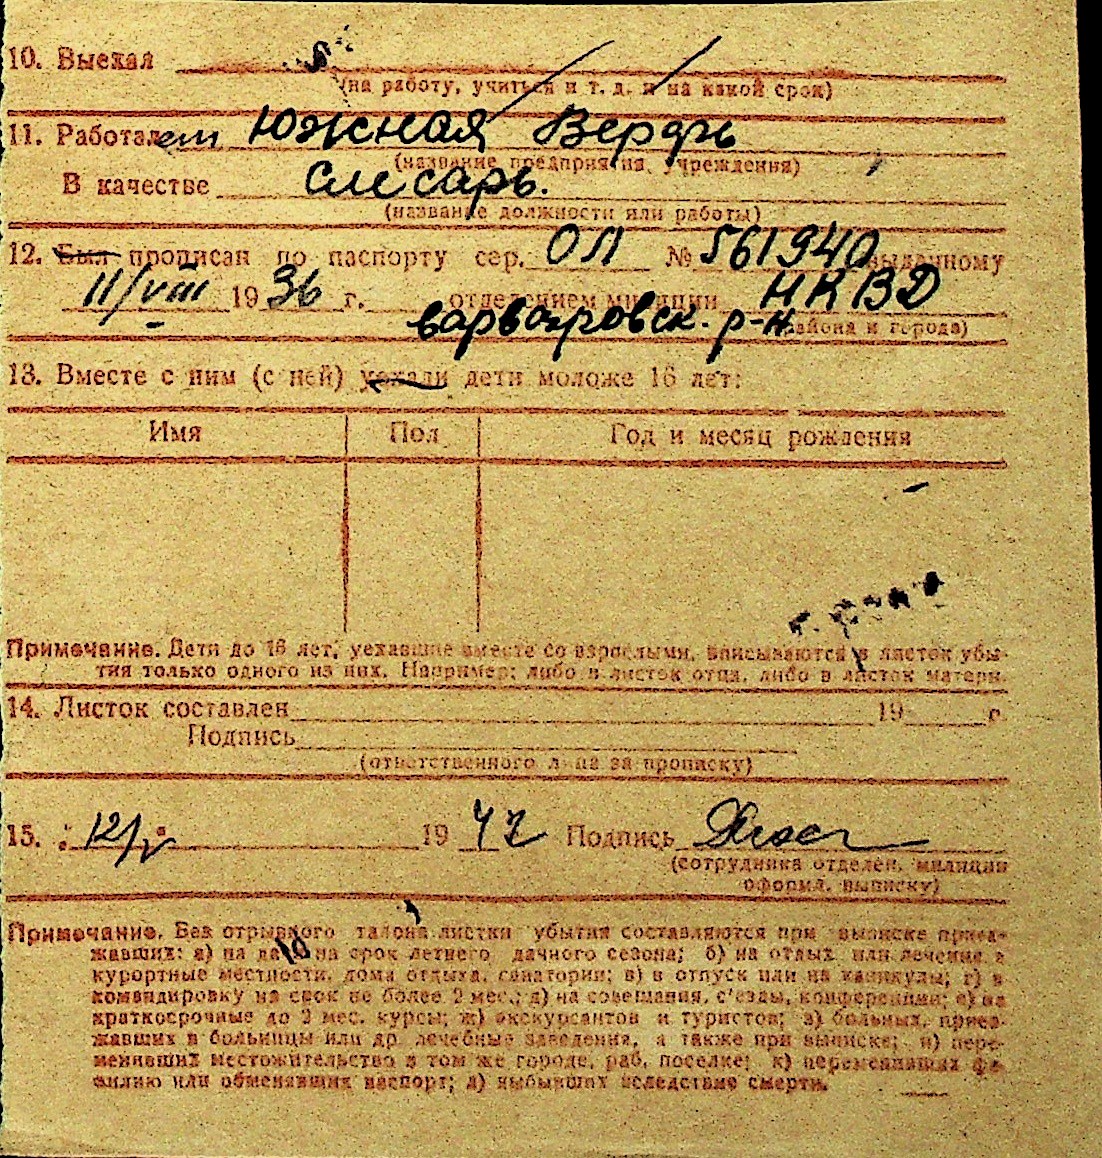 10. Выехал
(на работу, учиться и т. д. и на какой срок)
11. Работает Южная Верфь
(название предприятия, учреждения)
В качестве Слесарь.
(название должности или работы)
12. Был прописан по паспорту сер. ОЛ № 561940 выданному
11/VIII 1936 г. отделением милиции НКВД
варваровск. р-н. (района и города)
13. Вместе с ним (с ней) уехали дети моложе 16 лет:
Имя Пол Год и месяц рождения
Примечание. Дети до 16 лет, уехавшие вместе со взрослыми, вписываются в листок убы-
тия только одного из них. Например: либо в листок отца, либо в листок матери.
14. Листок составлен 19 г.
Подпись
(ответственного лица за прописку)
15. 12/V 1942 Подпись
(сотрудника отделен. милиции
оформл. выписку)
Примечание. Без отрывного талона листки убытия составляются при выписке приез-
жавших: а) на дачу на срок летнего дачного сезона; б) на отдых или лечение в
курортные местности, дома отдыха, санатории; в) в отпуск или на каникулы; г) в
командировку на срок не более 2 мес.; д) на совещания, с'езды, конференции; е) на
краткосрочные до 3 мес. курсы; ж) экскурсантов и туристов; з) больных, приез-
жавших в больницы или др. лечебные заведения, а также при выписке; и) пере-
менивших местожительство в том же городе, раб. поселке; к) переменивших фа-
милию или обменявших паспорт; л) выбывших вследствие смерти.